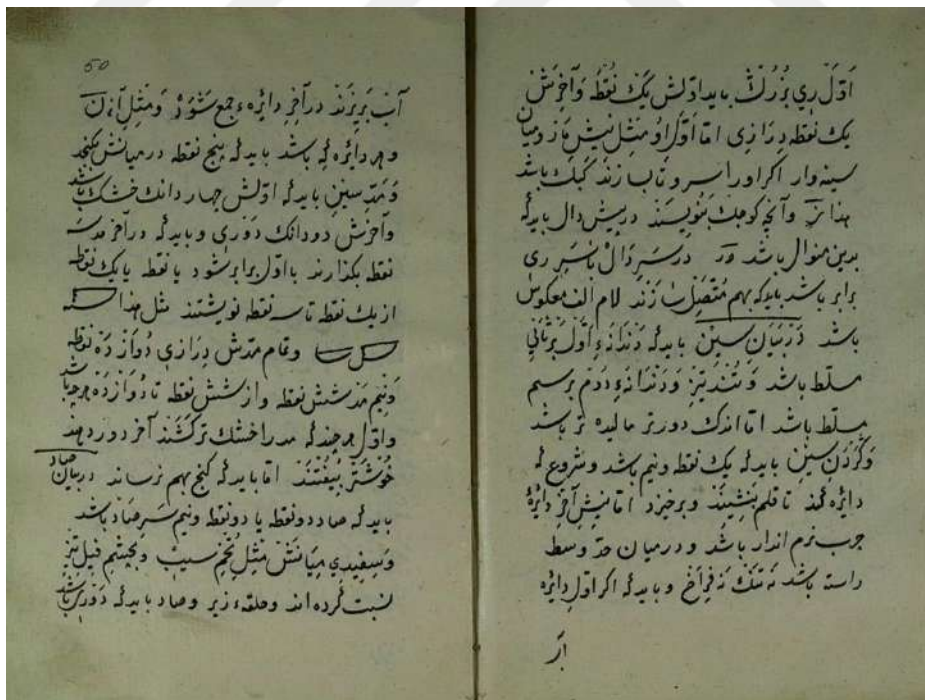 اَوّلْ ريِ بُزُرْكْ بايد اوّلش يَكْ نقطَ وَآخِرَشْ
يك نقطه دِرَازِى امّا اَوّلِ اوُ مثلِ نيشِ مار و ميان
سينه وار اكر اورا سر و تاب زند كبك باشد
هذا ر وآنچه كوچك بنويسند در پيش دال بايدكه
بدين منوال باشد در در سَرِ دَالْ با سَرِ رى
برابر باشد بايدكه بهم مُتّصِل سازند لام الف معكوس
باشد دَرْبَيَانِ سينْ بايدكه دندانهءِ اَوّل بَرثَانِي
مسلط باشد وَتُنْدتِيز وَدَندانهءِ دوم بر سيم
مسلط باشد امّا اندك دورتر ماليده تر باشد
وَكَرْدَنِ سين بايدكه يك نقطه ونيم باشد وشروع كه
دائره كند تا قلم بنشيند وبرخيزد امّا نيشِ آخِرِ دائرهٔ
چرب نرم اندار باشد و درميان حدّ وسط
راسته باشد نَه تَنك نَه فِراخ و بايدكه اكر اولِ دائره
50
آب بَرِيزند در آخرِ دائرهء جمع شَوَدْ وَمثلِ آن ن
وهر دائره كه باشد بايدكه پنج نقطه درميانش بكنجد
وَمَدِّ سينين بايدكه اوّلش چهار دانك خشك باشد
وآخرش دودانك دَوْرى وبايدكه در آخر مد سه
نقطه بكذارند با اوّل برابر شود يا نقطه يا يك نقطه
از يك نقطه تا سه نقطه نوشتند مثل هذا
وتمام مدّش دِرَازىِ دُوَازْدَه نقطه
وَنيم مَد شش نقطه واز شش نقطه تا دُوَازْدَه هرچه باشد
واوّل هرچندكه مد را خشك تر كشند آخر دور دهند
خُوشْتَر بيُفتد امّا بايدكه كنج بهم نرساند دربيان صاد
بايدكه صاد دو نقطه يا دو نقطه ونيم سَرِ صَاد باشد
وَسِفِيدىِ مِيَانَشْ مثلِ تُخمِ سيب وبچشم فيل نيز
نسبت كرده اند وحلقهء زير وصاد بايدكه دَورى باشد